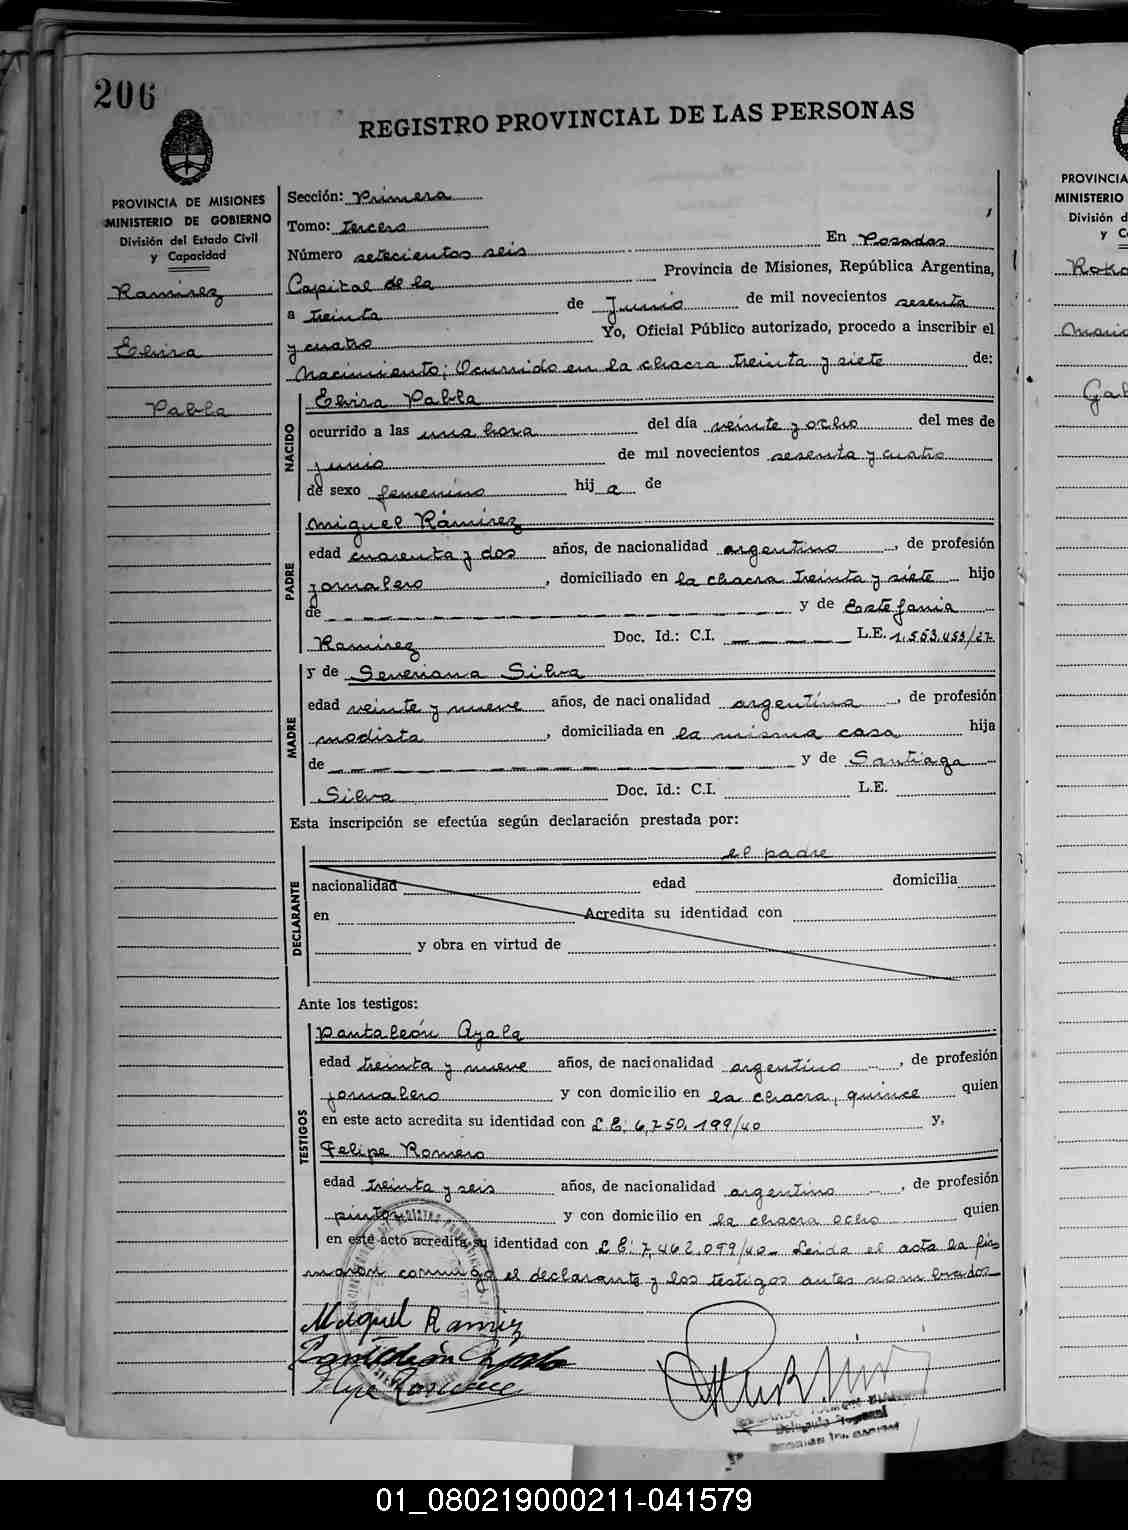 206
REGISTRO PROVINCIAL DE LAS PERSONAS
PROVINCIA DE MISIONES
MINISTERIO DE GOBIERNO
División del Estado Civil
y Capacidad
Ramirez
Elvira
Pabla
Sección: Primera
Tomo: tercero
Número setecientos seis En Posadas
Capital de la Provincia de Misiones, República Argentina,
a treinta de Junio de mil novecientos sesenta
y cuatro Yo, Oficial Público autorizado, procedo a inscribir el
Nacimiento; Ocurrido en la chacra treinta y siete de:
NACIDO
Elvira Pabla
ocurrido a las una hora del día veinte y ocho del mes de
junio de mil novecientos sesenta y cuatro
de sexo femenino hij a de
PADRE
Miguel Rámirez
edad cuarenta y dos años, de nacionalidad argentino, de profesión
jornalero, domiciliado en la chacra treinta y siete hijo
de y de Estefania
Ramirez Doc. Id.: C.I. L.E. 1.553.453/27
MADRE
y de Severiana Silva
edad veinte y nueve años, de nacionalidad argentina, de profesión
modista, domiciliada en la misma casa hija
de y de Santiaga
Silva Doc. Id.: C.I. L.E.
Esta inscripción se efectúa según declaración prestada por:
DECLARANTE
el padre
nacionalidad edad domicilia
en Acredita su identidad con
y obra en virtud de
Ante los testigos:
TESTIGOS
Pantaleón Ayala
edad treinta y nueve años, de nacionalidad argentino, de profesión
jornalero y con domicilio en la chacra, quince quien
en este acto acredita su identidad con L E: 6,750,199/40 y,
Felipe Romero
edad treinta y seis años, de nacionalidad argentino, de profesión
pintor y con domicilio en la chacra ocho quien
en este acto acredita su identidad con L E: 7,462,099/40. Leida el acta la fir
maron conmigo el declarante y los testigos antes nombrados
Miguel Ramirez
Pantaleón Ayala
Felipe Romero
PROVINCIA
MINISTERIO
División d
y C
01_080219000211-041579